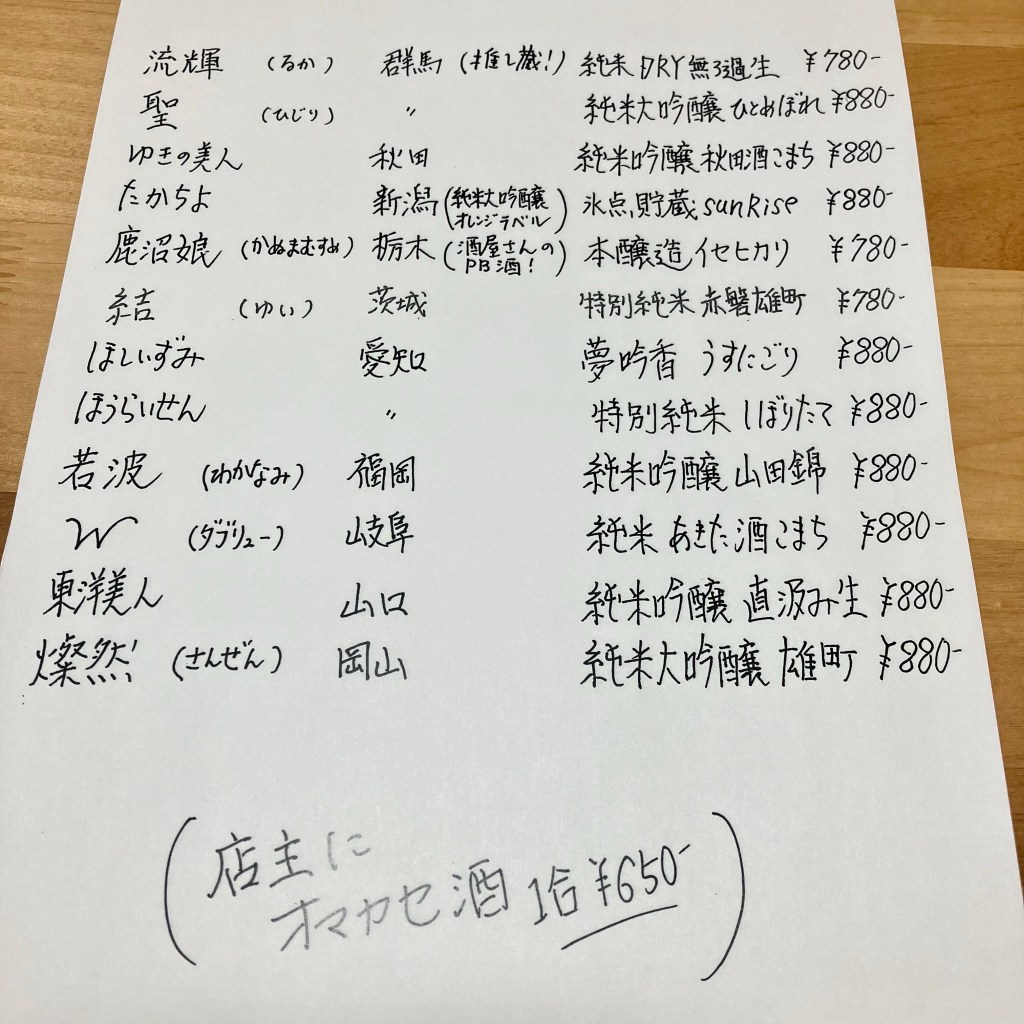 流輝 (るか) 群馬 (推し蔵!) 純米 DRY 無ろ過生 ¥780-
聖 (ひじり) 〃 純米大吟醸 ひとめぼれ ¥880-
ゆきの美人 秋田 純米吟醸 秋田酒こまち ¥880-
たかちよ 新潟 (純米大吟醸 オレンジラベル) 氷点貯蔵 sunRise ¥880-
鹿沼娘 (かぬまむすめ) 栃木 (酒屋さんの PB酒!) 本醸造 イセヒカリ ¥780-
結 (ゆい) 茨城 特別純米 赤磐雄町 ¥780-
ほしいずみ 愛知 夢吟香 うすにごり ¥880-
ほうらいせん 〃 特別純米 しぼりたて ¥880-
若波 (わかなみ) 福岡 純米吟醸 山田錦 ¥880-
W (ダブリュー) 岐阜 純米 あきた酒こまち ¥880-
東洋美人 山口 純米吟醸 直汲み生 ¥880-
燦然 (さんぜん) 岡山 純米大吟醸 雄町 ¥880-
(店主に
オマカセ酒 1合 ¥650-)